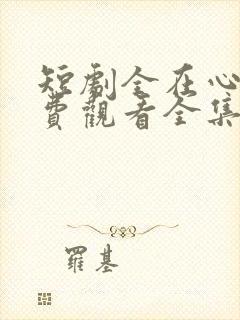 短劇全在心
費觀看全集
羅基